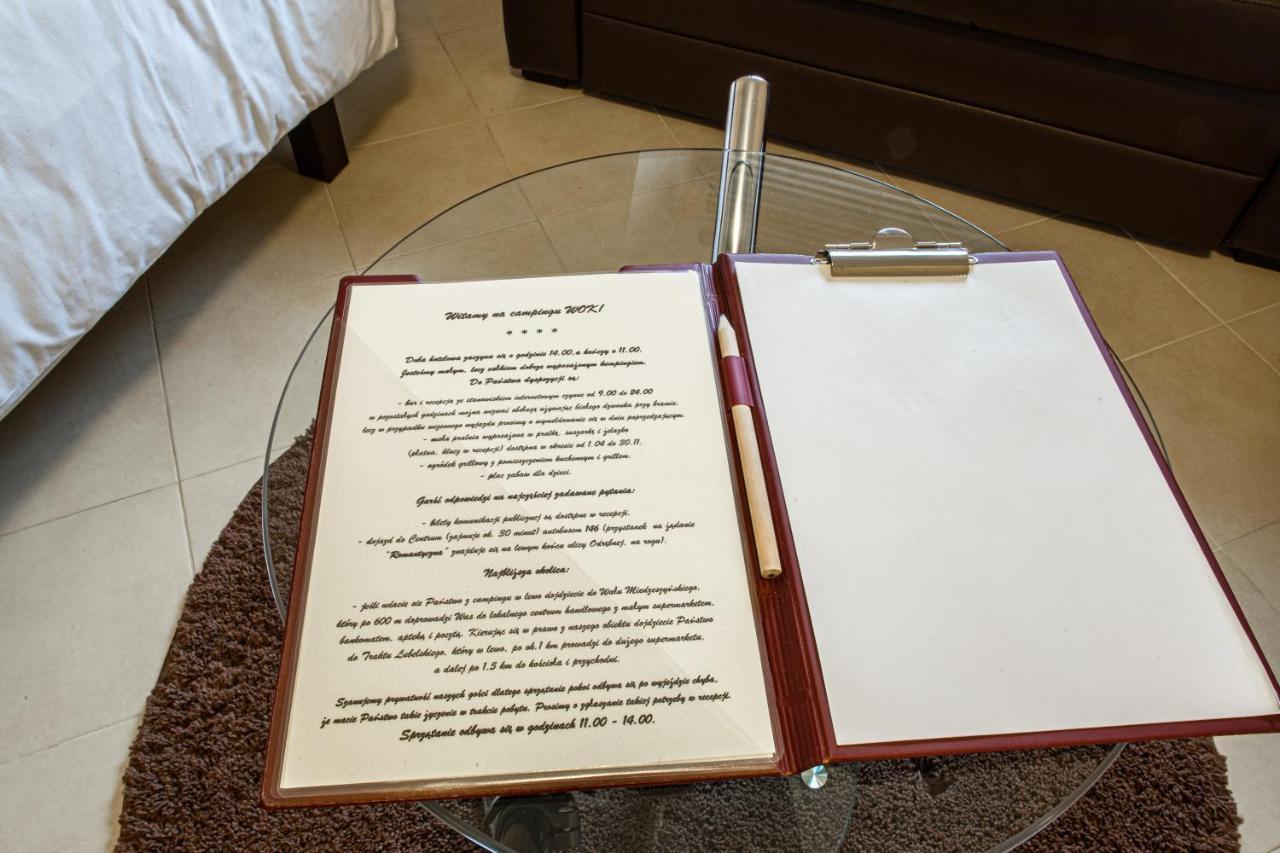 Witamy na campingu WOK!
* * * *
Doba hotelowa zaczyna się o godzinie 14.00, a kończy o 11.00.
Jesteśmy małym, lecz całkiem dobrze wyposażonym kempingiem.
Do Państwa dyspozycji są:
- bar i recepcja ze stanowiskiem internetowym czynne od 9.00 do 24.00
w pozostałych godzinach można wezwać obsługę używając białego dzwonka przy bramie,
lecz w przypadku wczesnego wyjazdu prosimy o wymeldowanie się w dniu poprzedzającym.
- mała pralnia wyposażona w pralkę, suszarkę i żelazko
(płatna, klucz w recepcji) dostępna w okresie od 1.04 do 30.11.
- ogródek grillowy z pomieszczeniem kuchennym i grillem.
- plac zabaw dla dzieci.
Garść odpowiedzi na najczęściej zadawane pytania:
- bilety komunikacji publicznej są dostępne w recepcji.
- dojazd do Centrum (zajmuje ok. 30 minut) autobusem 146 (przystanek na żądanie
"Romantyczna" znajduje się na lewym końcu ulicy Odrębnej, na rogu).
Najbliższa okolica:
- jeśli udacie sie Państwo z campingu w lewo dojdziecie do Wału Miedzeszyńskiego,
który po 600 m doprowadzi Was do lokalnego centrum handlowego z małym supermarketem,
bankomatem, apteką i pocztą. Kierując się w prawo z naszego obiektu dojdziecie Państwo
do Traktu Lubelskiego, który w lewo, po ok.1 km prowadzi do dużego supermarketu,
a dalej po 1,5 km do kościoła i przychodni.
Szanujemy prywatność naszych gości dlatego sprzątanie pokoi odbywa się po wyjeździe chyba,
że macie Państwo takie życzenie w trakcie pobytu. Prosimy o zgłaszanie takiej potrzeby w recepcji.
Sprzątanie odbywa się w godzinach 11.00 - 14.00.